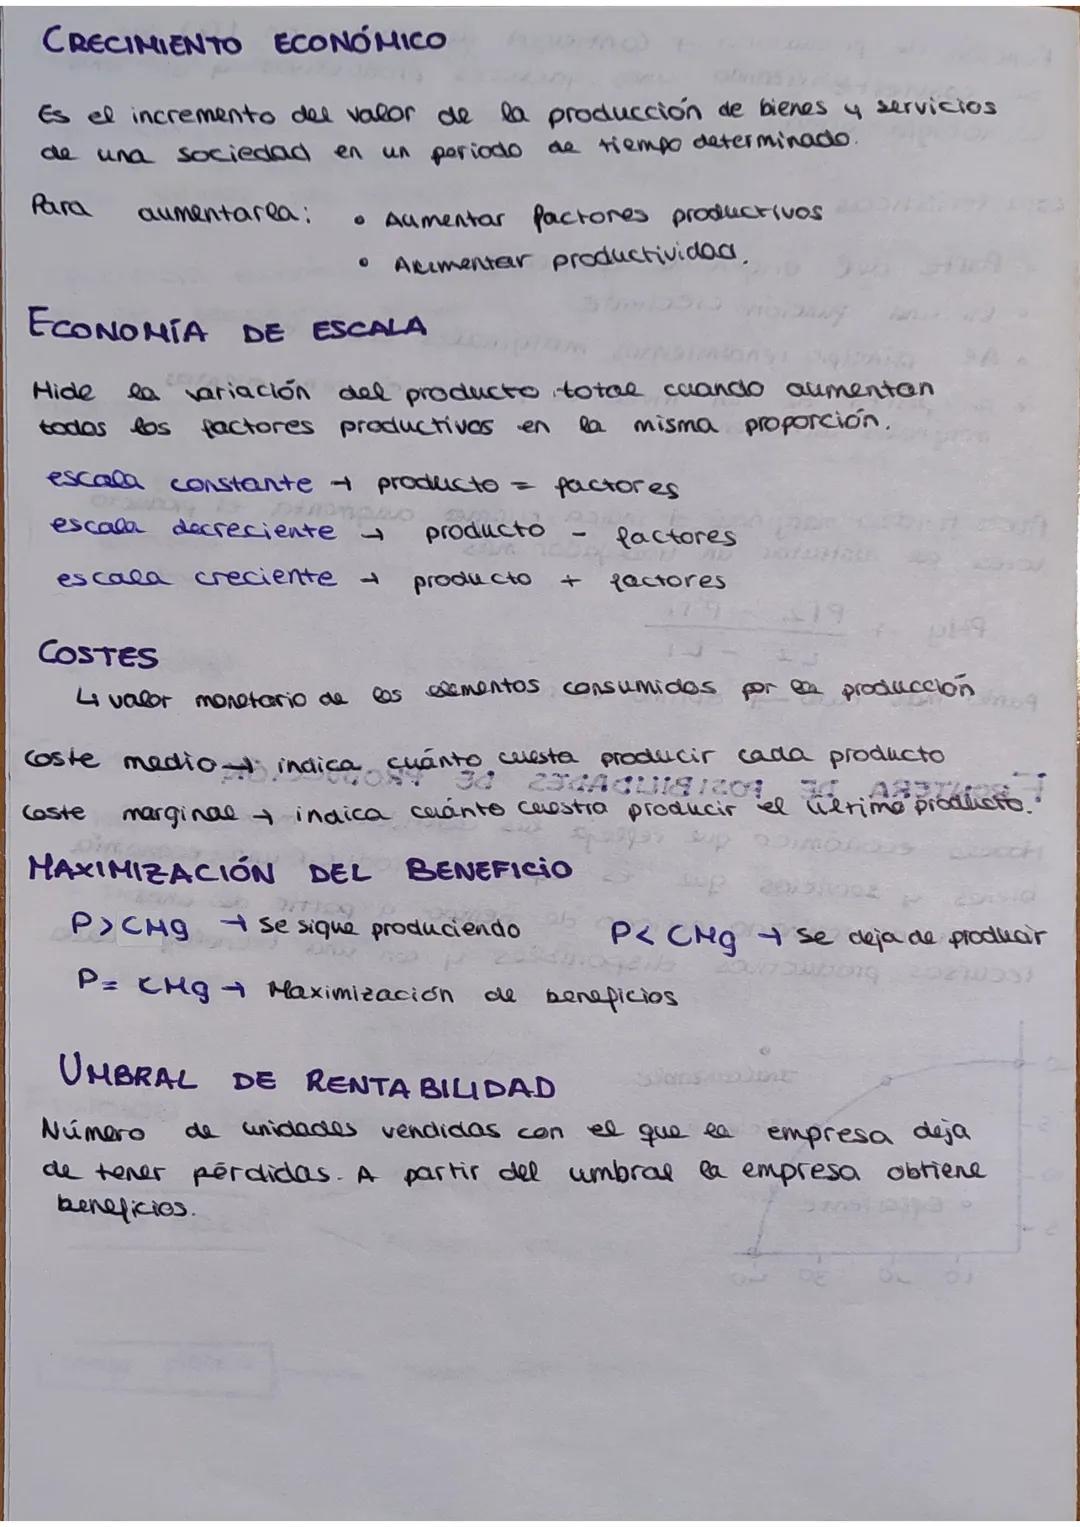 CRECIMIENTO ECONÓMICO
Es el incremento del valor de la producción de bienes y servicios
de una sociedad en un periodo de tiempo determinado.
Para aumentarla: • Aumentar factores productivos
• Aumentar productividad.
ECONOMÍA DE ESCALA
Mide la variación del producto total cuando aumentan
todos los factores productivos en la misma proporción.
escala constante → producto = factores
escala decreciente → producto - factores
escala creciente → producto + factores
COSTES
↳ valor monetario de los elementos consumidos por la producción
Coste medio → indica cuánto cuesta producir cada producto
Coste marginal → indica cuánto cuestra producir el último producto.
MAXIMIZACIÓN DEL BENEFICIO
P > CMg → Se sigue produciendo P < CMg → Se deja de producir
P = CMg → Maximización de beneficios
UMBRAL DE RENTABILIDAD
Número de unidades vendidas con el que la empresa deja
de tener pérdidas. A partir del umbral la empresa obtiene
beneficios.